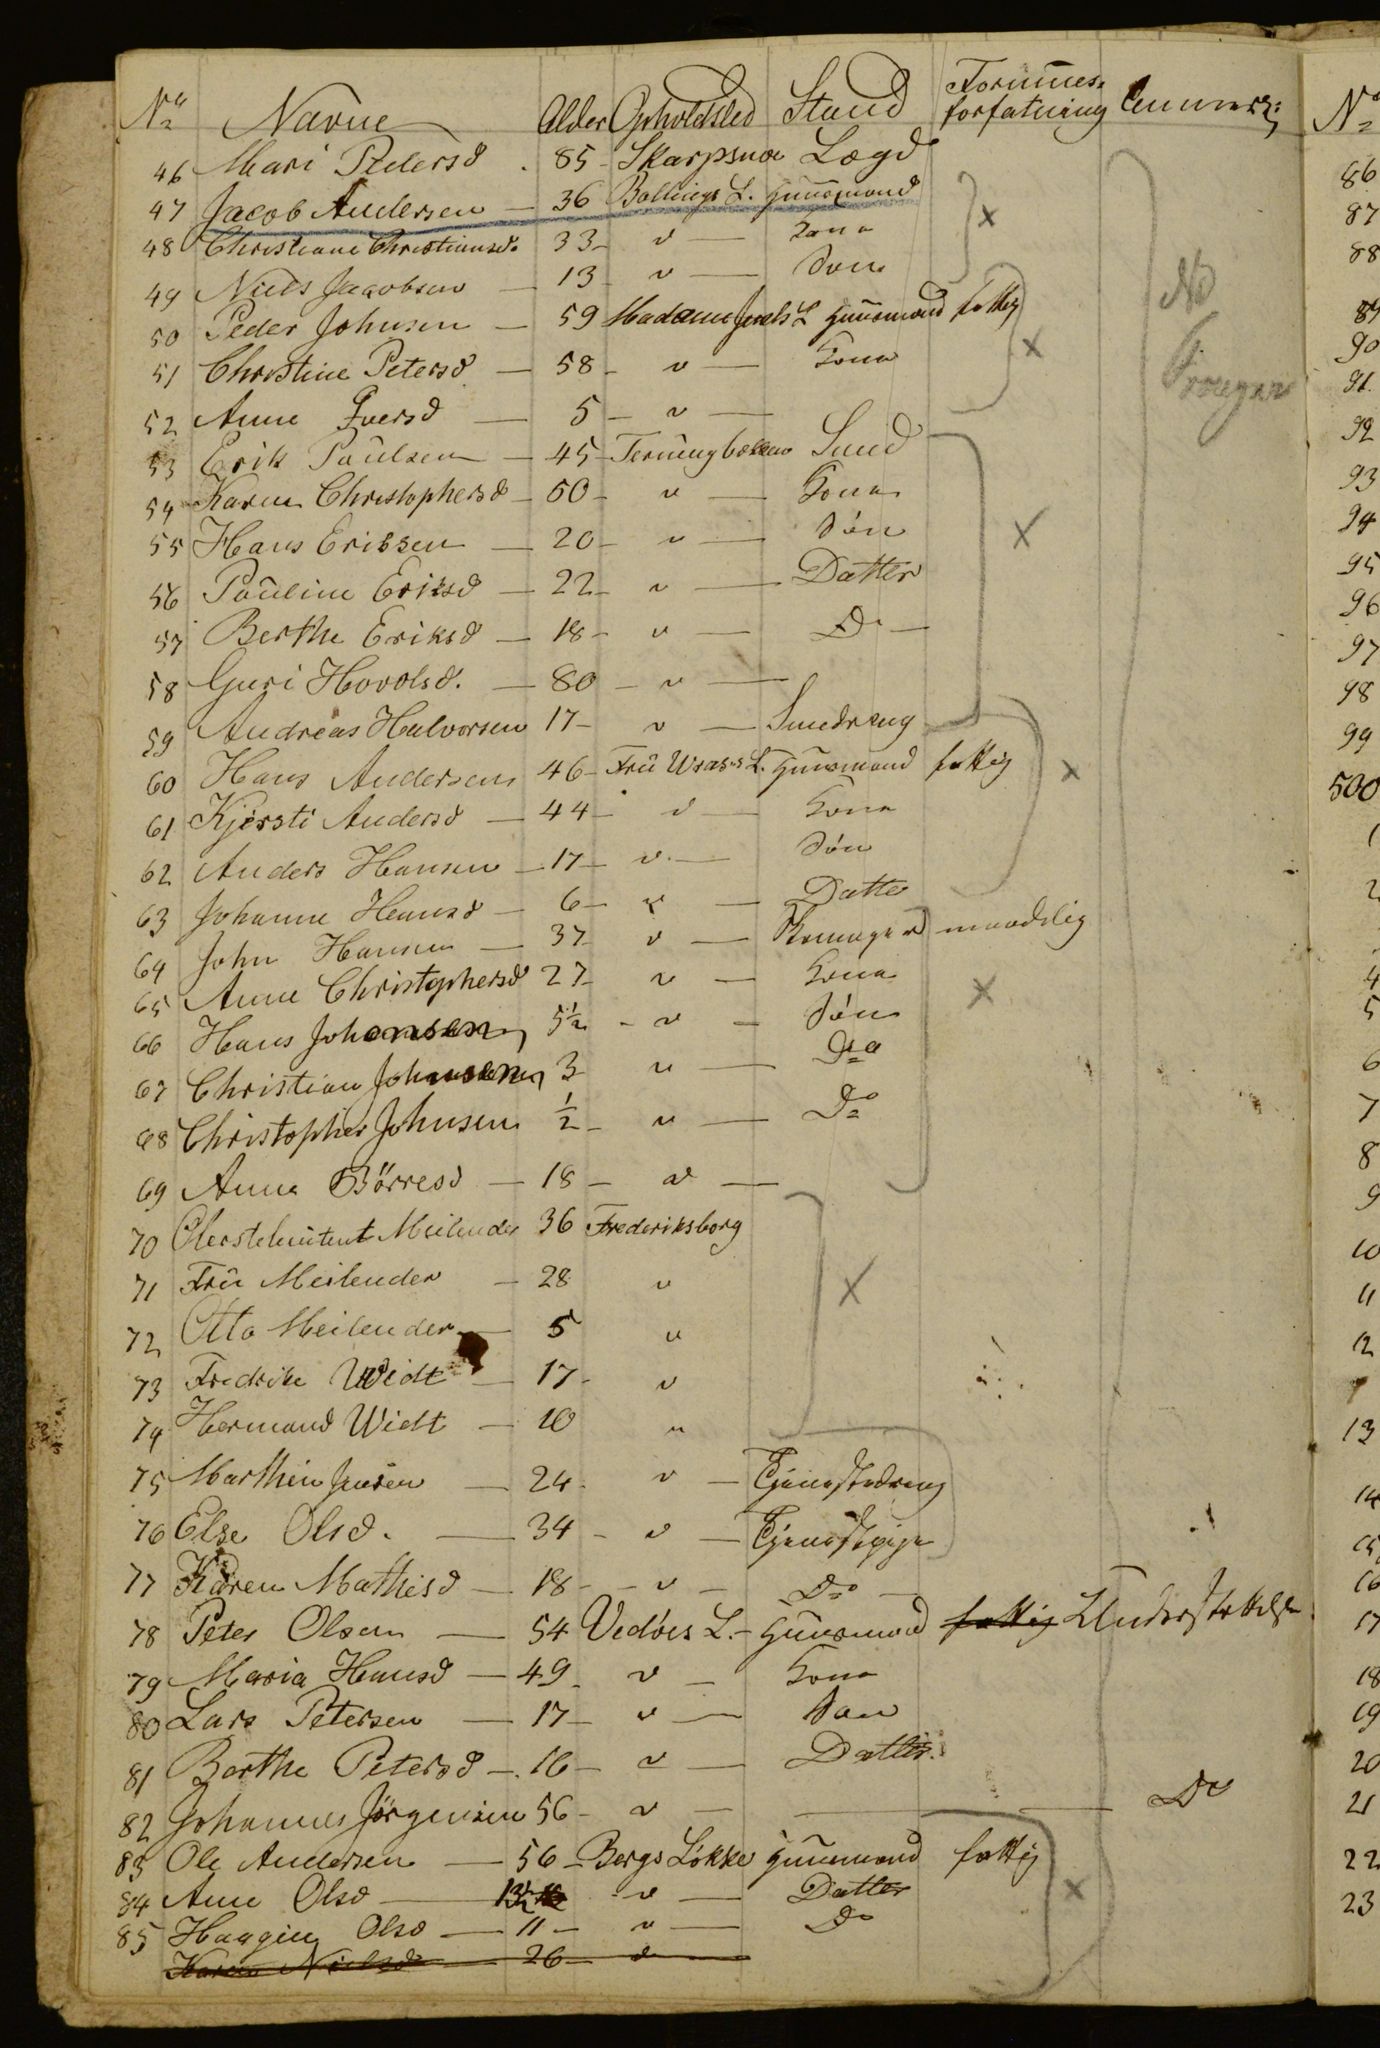 No Navne Alder Opholdsted Stand Formues- forfatning Anmærk:
46 Mari Pedersd. 85 - Skarpsnoe Lægd
47 Jacob Andersen - 36 Ballings L. Huusmand
48 Christiane Christiansd. 33 - " - Kona
49 Niels Jacobsen - 13 " - Søn
50 Peder Johnsen - 59 Madame Juels L Huusmand fattig
51 Christine Petersd - 58 - " - Kona
52 Anne Iversd - 5 - " -
53 Erik Paulsen - 45 - Terningbekken Smed
54 Karen Christophersd - 50 - " - Kona
55 Hans Eriksen - 20 - " - Søn
56 Pauline Eriksd - 22 - " - Datter
57 Berthe Eriksd - 18 - " - Do -
58 Guri Hovolsd. - 80 - " -
59 Andreas Halvorsen 17 - " - Smedreng
60 Hans Andersen 46 - Frü L. Huusmand fattig
61 Kjersti Andersd - 44 - " - Kona
62 Anders Hansen - 17 - " - Søn
63 Johanne Hansd - 6 - " - Datter
64 John Hansen - 37 - " - Skomager maadelig
65 Anne Christophersd 27 - " - Kona
66 Hans Johansen 5½ - " - Søn
67 Christian Johnsen 3 " - Do
68 Christopher Johnsen ½ - " - Do
69 Anne Börresd - 18 - " -
70 Oberstleiutent Meilender 36 Frederiksborg
71 Frü Meilender - 28 "
72 Otto Meilender - 5 "
73 Fredrike Widt - 17 - "
74 Hermand Widt - 10 "
75 Marthin Jensen - 24 - " - Tjenestedreng
76 Else Olsd. - 34 - " - Tjenestepige
77 Karen Mathisd - 18 - " - Do -
78 Peter Olsen - 54 Vedöes L. - Huusmand fattig Understøttelse
79 Maria Hansd - 49 - " - Kona
80 Lars Petersen - 17 - " - Søn
81 Berthe Petersd - 16 - " - Datter
82 Johannes Jörgensen 56 - " - - Do
83 Ole Andersen - 56 - Bergs Løkke Huusmand fattig
84 Ane Olsd - 13½ - " - Datter
85 Haagine Olsd - 11 - " - Do
Karen Nielsd - 26 - " -
No
86
87
88
89
90
91
92
93
94
95
96
97
98
99
500
1
2
4
5
6
7
8
9
10
11
12
13
14
15
16
17
18
19
20
21
22
23